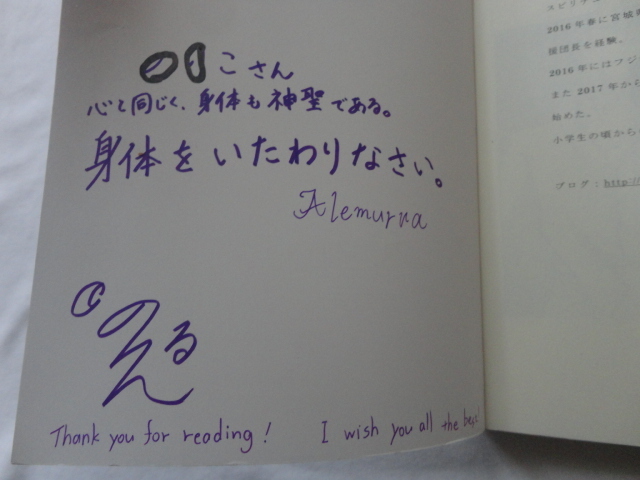 のりこさん
心と同じく、身体も神聖である。
身体をいたわりなさい。
Alemurra
のえる
Thank you for reading!
I wish you all the best!
スピリチュ
2016年春に宮城
援団長を経験。
2016年にはフジ
また2017年から
始めた。
小学生の頃から
ブログ：http://